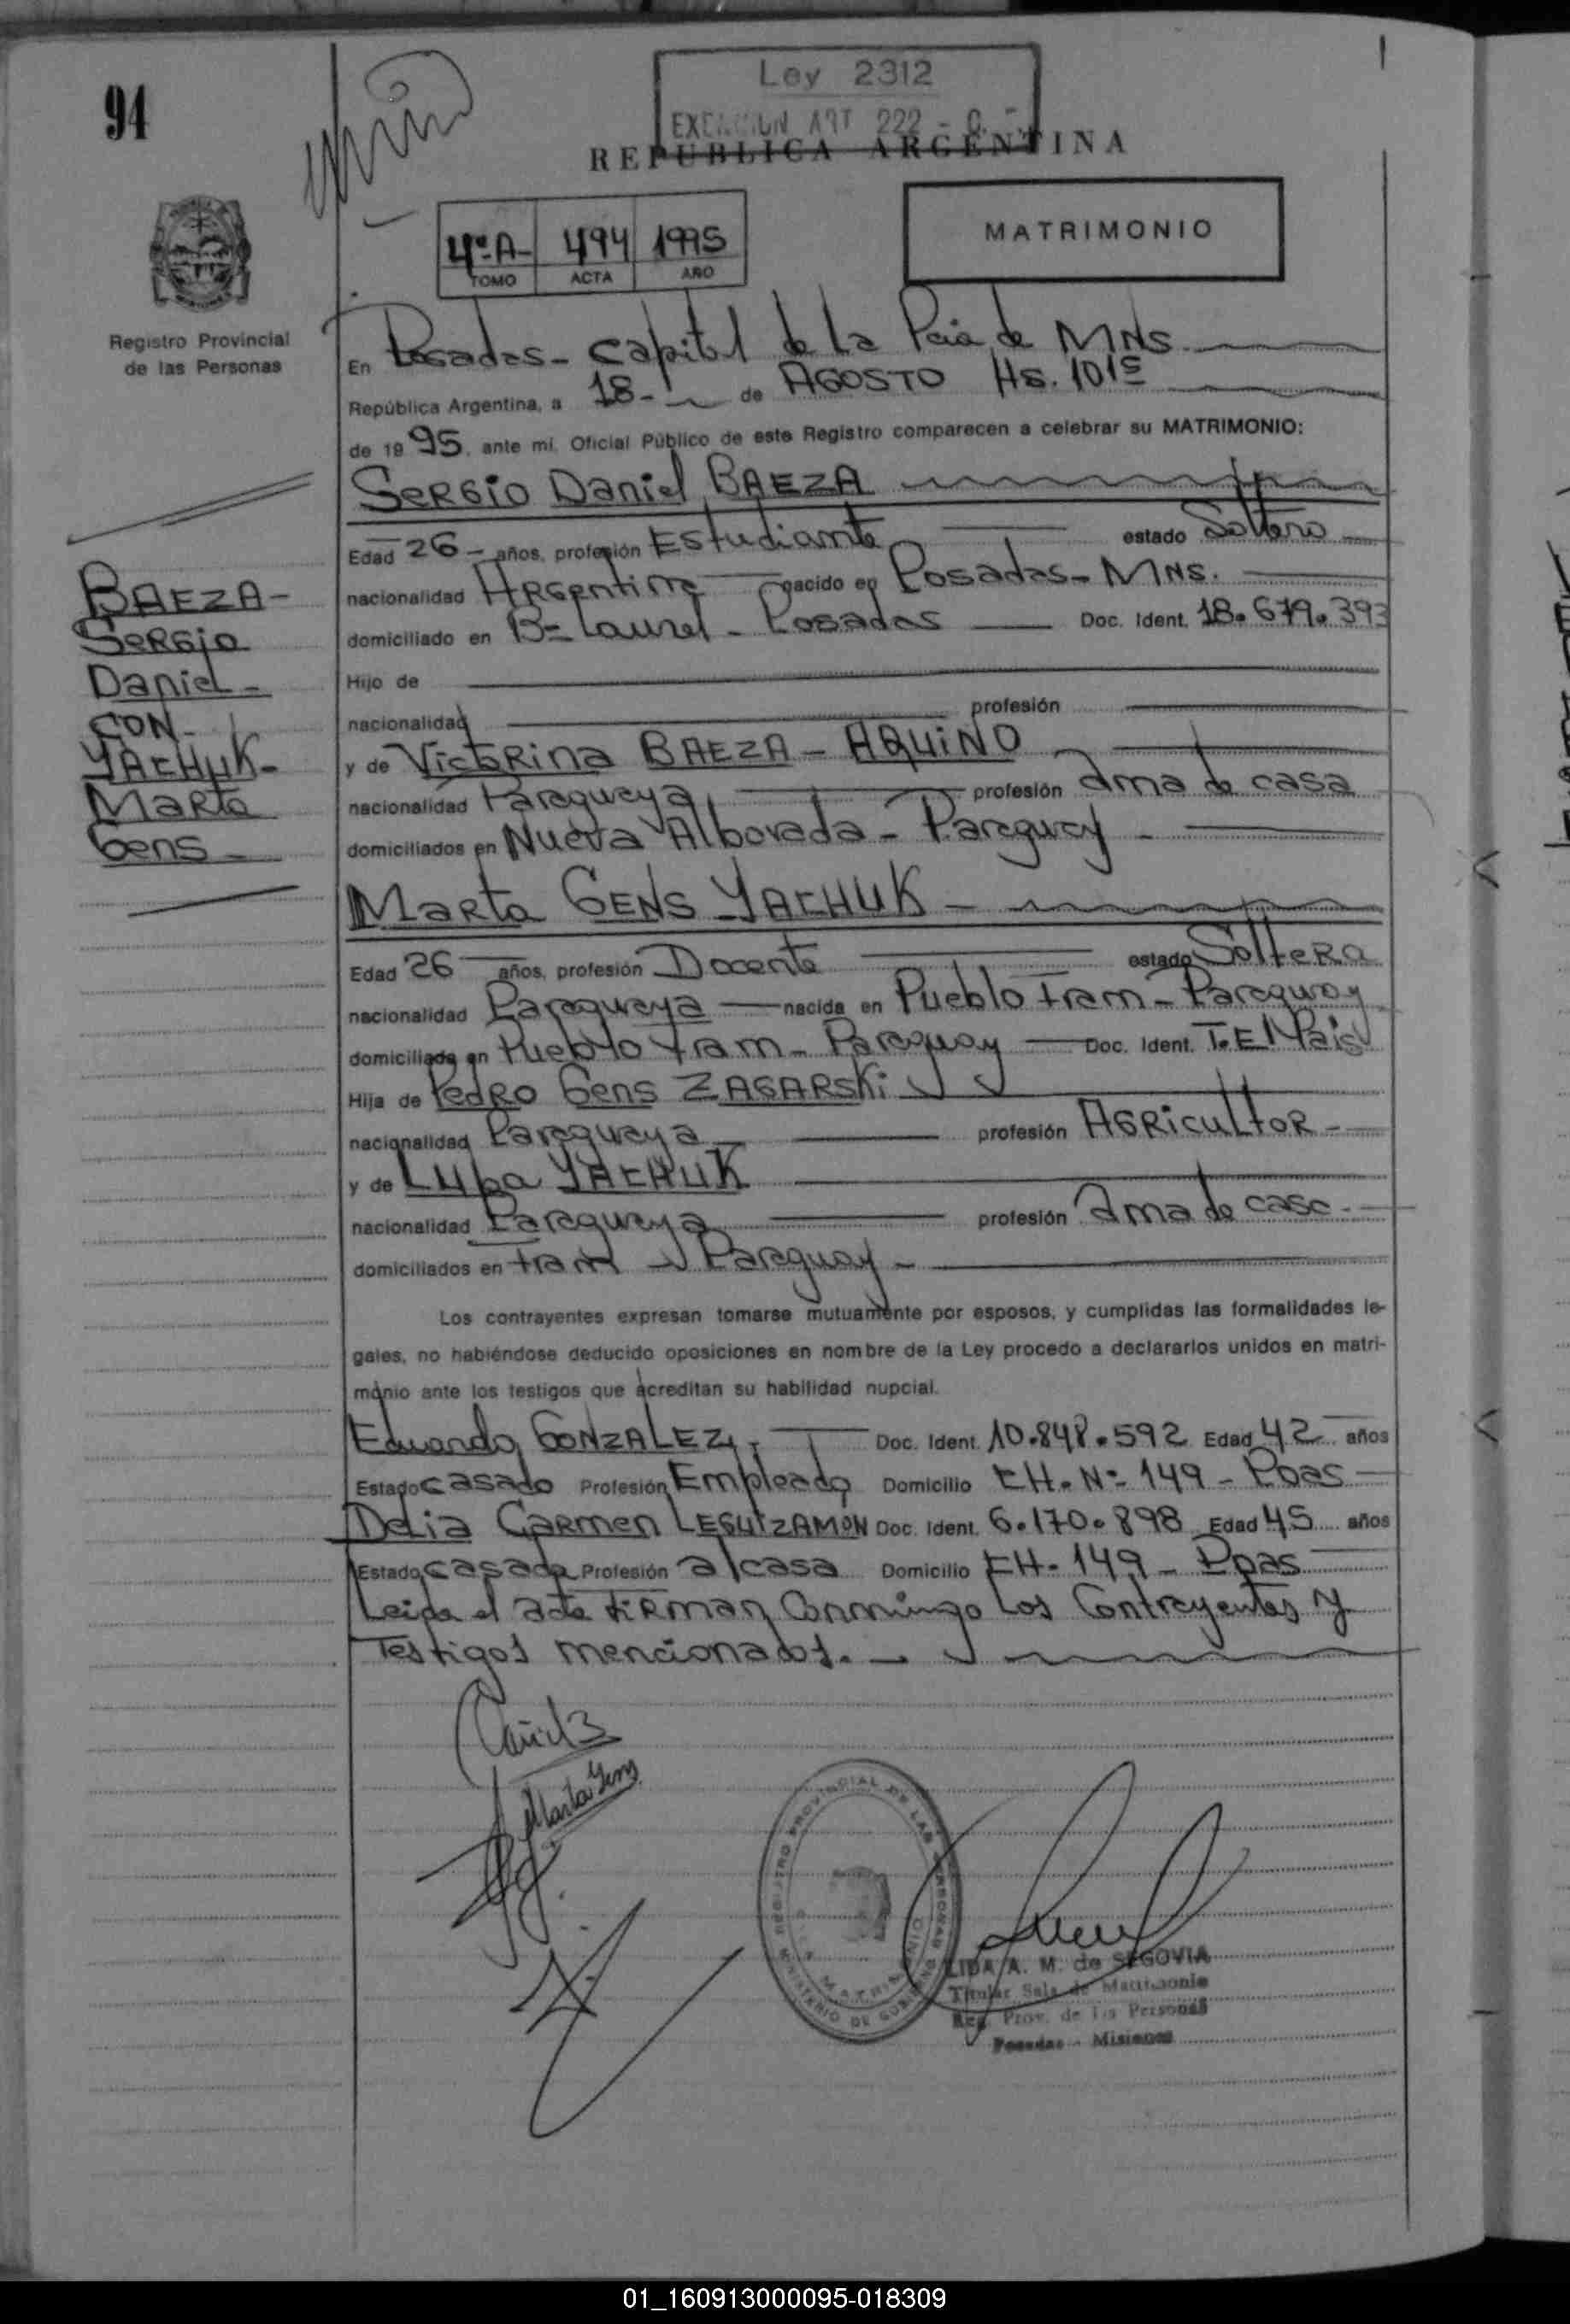 94
Ley 2312
EXENCION ART 222 - C.
REPUBLICA ARGENTINA
4º A- 494 1995
TOMO ACTA AÑO
MATRIMONIO
Registro Provincial
de las Personas
En Posadas - Capital de La Pcia de MNS.
República Argentina, a 18 - de AGOSTO Hs. 10 15
de 19 95, ante mí, Oficial Público de este Registro comparecen a celebrar su MATRIMONIO:
SERGIO Daniel BAEZA
Edad 26 - años, profesión Estudiante estado Soltero
nacionalidad ARGentina nacido en Posadas - MNS.
domiciliado en Bº Laurel - Posadas Doc. Ident. 18.679.393
Hijo de
nacionalidad profesión
y de VictoRina BAEZA - AQUINO
nacionalidad Paraguaya profesión ama de casa
domiciliados en Nueva Alborada - Paraguay -
BAEZA -
SeRGio
Daniel -
CON -
YACHUK -
MaRta
Gens -
MaRta GENS YACHUK -
Edad 26 años, profesión Docente estado SolteRa
nacionalidad Paraguaya nacida en Pueblo Fram - Paraguay
domiciliada en Pueblo Fram - Paraguay Doc. Ident. T.E/Pais
Hija de PedRo Gens ZAGARSKi
nacionalidad Paraguaya profesión AGRicultoR -
y de Luba YACHUK
nacionalidad Paraguaya profesión ama de casa -
domiciliados en Fram - Paraguay -
Los contrayentes expresan tomarse mutuamente por esposos, y cumplidas las formalidades le-
gales, no habiéndose deducido oposiciones en nombre de la Ley procedo a declararlos unidos en matri-
monio ante los testigos que acreditan su habilidad nupcial.
Eduardo GONZALEZ, Doc. Ident. 10.848.592 Edad 42 años
Estado casado Profesión Empleado Domicilio CH. Nº 149 - Pdas
Delia CaRmen LEGUIZAMON Doc. Ident. 6.170.898 Edad 45 años
Estado casada Profesión a/casa Domicilio CH. 149 - Pdas
Leida el acta FiRman Conmingo Los Contrayentes y
Testigos mencionados. -
Marta Gens
REGISTRO PROVINCIAL DE LAS PERSONAS
MINISTERIO DE GOBIERNO
MATRIMONIO
LIDA A. M. de SEGOVIA
Titular Sala de Matrimonio
Reg. Prov. de las Personas
Posadas - Misiones
01_160913000095-018309